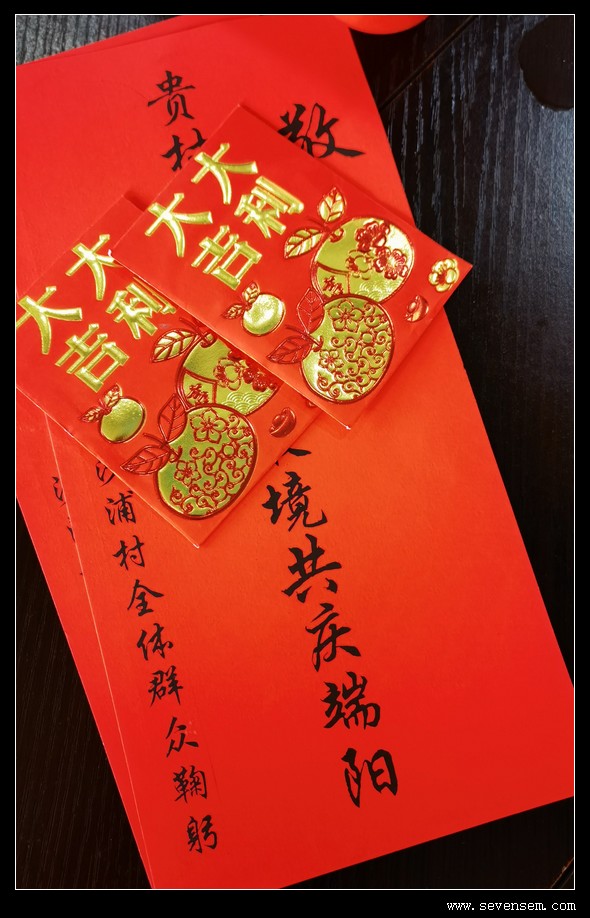 敬
境共庆端阳
贵村
浦村全体群众鞠躬
大吉
大利
大吉
大利
www.sevensem.com